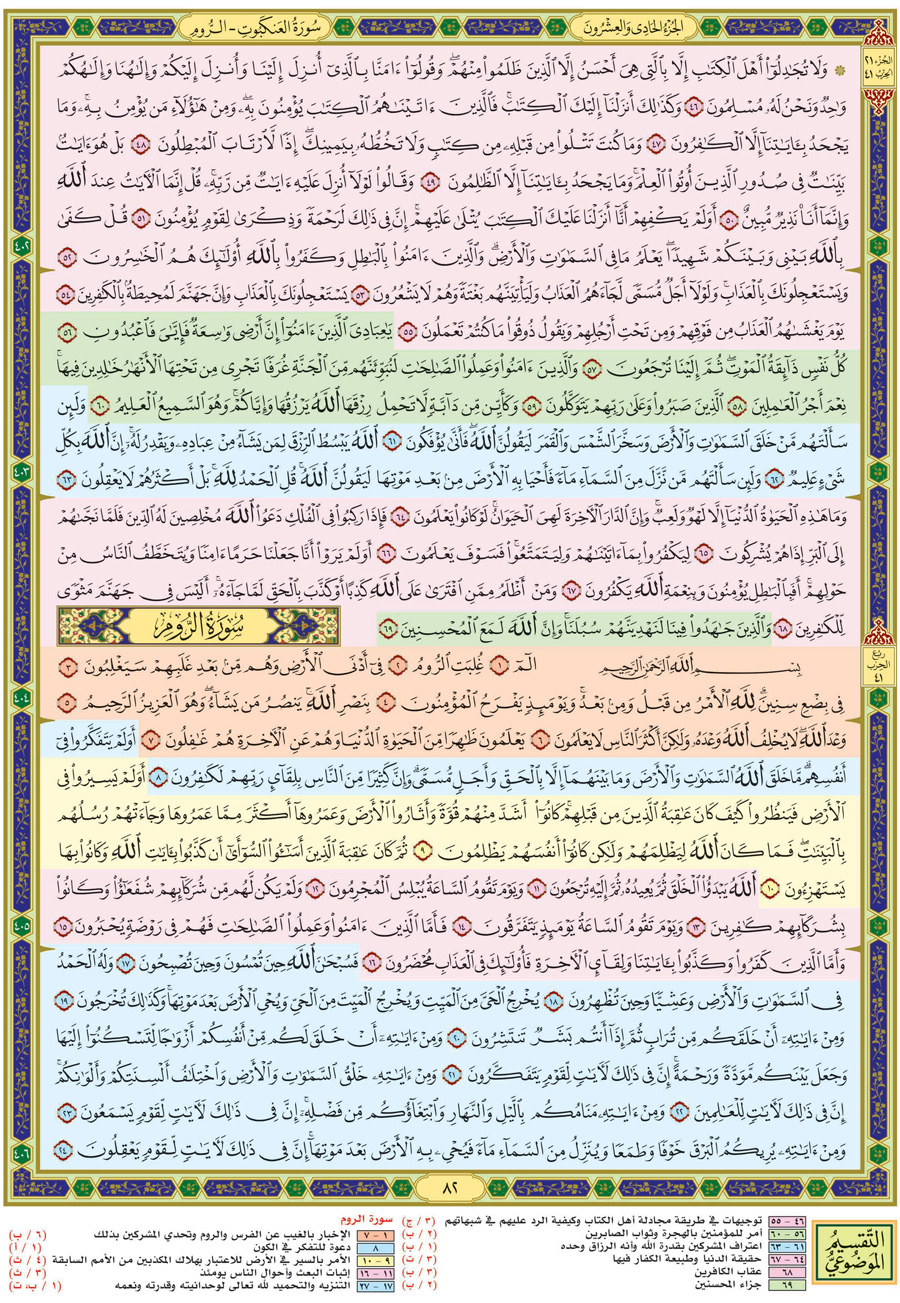 سُورَةُ العَنكَبُوتِ - الـرُّومِ
الجُزْءُ الحَادِى وَالعِشْرُونَ
الجُزء ٢١
الحِزب ٤١
۞ وَلَا تُجَٰدِلُوٓا۟ أَهْلَ ٱلْكِتَٰبِ إِلَّا بِٱلَّتِى هِىَ أَحْسَنُ إِلَّا ٱلَّذِينَ ظَلَمُوا۟ مِنْهُمْ ۖ وَقُولُوٓا۟ ءَامَنَّا بِٱلَّذِىٓ أُنزِلَ إِلَيْنَا وَأُنزِلَ إِلَيْكُمْ وَإِلَٰهُنَا وَإِلَٰهُكُمْ
وَٰحِدٌ وَنَحْنُ لَهُۥ مُسْلِمُونَ ٤٦ وَكَذَٰلِكَ أَنزَلْنَآ إِلَيْكَ ٱلْكِتَٰبَ ۚ فَٱلَّذِينَ ءَاتَيْنَٰهُمُ ٱلْكِتَٰبَ يُؤْمِنُونَ بِهِۦ ۖ وَمِنْ هَٰٓؤُلَآءِ مَن يُؤْمِنُ بِهِۦ ۚ وَمَا
يَجْحَدُ بِـَٔايَٰتِنَآ إِلَّا ٱلْكَٰفِرُونَ ٤٧ وَمَا كُنتَ تَتْلُوا۟ مِن قَبْلِهِۦ مِن كِتَٰبٍ وَلَا تَخُطُّهُۥ بِيَمِينِكَ ۖ إِذًا لَّٱرْتَابَ ٱلْمُبْطِلُونَ ٤٨ بَلْ هُوَ ءَايَٰتٌۢ
بَيِّنَٰتٌ فِى صُدُورِ ٱلَّذِينَ أُوتُوا۟ ٱلْعِلْمَ ۚ وَمَا يَجْحَدُ بِـَٔايَٰتِنَآ إِلَّا ٱلظَّٰلِمُونَ ٤٩ وَقَالُوا۟ لَوْلَآ أُنزِلَ عَلَيْهِ ءَايَٰتٌ مِّن رَّبِّهِۦ ۖ قُلْ إِنَّمَا ٱلْءَايَٰتُ عِندَ ٱللَّهِ
وَإِنَّمَآ أَنَا۠ نَذِيرٌ مُّبِينٌ ٥٠ أَوَلَمْ يَكْفِهِمْ أَنَّآ أَنزَلْنَا عَلَيْكَ ٱلْكِتَٰبَ يُتْلَىٰ عَلَيْهِمْ ۚ إِنَّ فِى ذَٰلِكَ لَرَحْمَةً وَذِكْرَىٰ لِقَوْمٍ يُؤْمِنُونَ ٥١ قُلْ كَفَىٰ
بِٱللَّهِ بَيْنِى وَبَيْنَكُمْ شَهِيدًا ۖ يَعْلَمُ مَا فِى ٱلسَّمَٰوَٰتِ وَٱلْأَرْضِ ۗ وَٱلَّذِينَ ءَامَنُوا۟ بِٱلْبَٰطِلِ وَكَفَرُوا۟ بِٱللَّهِ أُو۟لَٰٓئِكَ هُمُ ٱلْخَٰسِرُونَ ٥٢
وَيَسْتَعْجِلُونَكَ بِٱلْعَذَابِ ۚ وَلَوْلَآ أَجَلٌ مُّسَمًّى لَّجَآءَهُمُ ٱلْعَذَابُ وَلَيَأْتِيَنَّهُم بَغْتَةً وَهُمْ لَا يَشْعُرُونَ ٥٣ يَسْتَعْجِلُونَكَ بِٱلْعَذَابِ وَإِنَّ جَهَنَّمَ لَمُحِيطَةٌۢ بِٱلْكَٰفِرِينَ ٥٤
يَوْمَ يَغْشَىٰهُمُ ٱلْعَذَابُ مِن فَوْقِهِمْ وَمِن تَحْتِ أَرْجُلِهِمْ وَيَقُولُ ذُوقُوا۟ مَا كُنتُمْ تَعْمَلُونَ ٥٥ يَٰعِبَادِىَ ٱلَّذِينَ ءَامَنُوٓا۟ إِنَّ أَرْضِى وَٰسِعَةٌ فَإِيَّٰىَ فَٱعْبُدُونِ ٥٦
كُلُّ نَفْسٍ ذَآئِقَةُ ٱلْمَوْتِ ۖ ثُمَّ إِلَيْنَا تُرْجَعُونَ ٥٧ وَٱلَّذِينَ ءَامَنُوا۟ وَعَمِلُوا۟ ٱلصَّٰلِحَٰتِ لَنُبَوِّئَنَّهُم مِّنَ ٱلْجَنَّةِ غُرَفًا تَجْرِى مِن تَحْتِهَا ٱلْأَنْهَٰرُ خَٰلِدِينَ فِيهَا ۚ
نِعْمَ أَجْرُ ٱلْعَٰمِلِينَ ٥٨ ٱلَّذِينَ صَبَرُوا۟ وَعَلَىٰ رَبِّهِمْ يَتَوَكَّلُونَ ٥٩ وَكَأَيِّن مِّن دَآبَّةٍ لَّا تَحْمِلُ رِزْقَهَا ٱللَّهُ يَرْزُقُهَا وَإِيَّاكُمْ ۚ وَهُوَ ٱلسَّمِيعُ ٱلْعَلِيمُ ٦٠ وَلَئِن
سَأَلْتَهُم مَّنْ خَلَقَ ٱلسَّمَٰوَٰتِ وَٱلْأَرْضَ وَسَخَّرَ ٱلشَّمْسَ وَٱلْقَمَرَ لَيَقُولُنَّ ٱللَّهُ ۖ فَأَنَّىٰ يُؤْفَكُونَ ٦١ ٱللَّهُ يَبْسُطُ ٱلرِّزْقَ لِمَن يَشَآءُ مِنْ عِبَادِهِۦ وَيَقْدِرُ لَهُۥٓ ۚ إِنَّ ٱللَّهَ بِكُلِّ
شَىْءٍ عَلِيمٌ ٦٢ وَلَئِن سَأَلْتَهُم مَّن نَّزَّلَ مِنَ ٱلسَّمَآءِ مَآءً فَأَحْيَا بِهِ ٱلْأَرْضَ مِنۢ بَعْدِ مَوْتِهَا لَيَقُولُنَّ ٱللَّهُ ۚ قُلِ ٱلْحَمْدُ لِلَّهِ ۚ بَلْ أَكْثَرُهُمْ لَا يَعْقِلُونَ ٦٣
وَمَا هَٰذِهِ ٱلْحَيَوٰةُ ٱلدُّنْيَآ إِلَّا لَهْوٌ وَلَعِبٌ ۚ وَإِنَّ ٱلدَّارَ ٱلْءَاخِرَةَ لَهِىَ ٱلْحَيَوَانُ ۚ لَوْ كَانُوا۟ يَعْلَمُونَ ٦٤ فَإِذَا رَكِبُوا۟ فِى ٱلْفُلْكِ دَعَوُا۟ ٱللَّهَ مُخْلِصِينَ لَهُ ٱلدِّينَ فَلَمَّا نَجَّىٰهُمْ
إِلَى ٱلْبَرِّ إِذَا هُمْ يُشْرِكُونَ ٦٥ لِيَكْفُرُوا۟ بِمَآ ءَاتَيْنَٰهُمْ وَلِيَتَمَتَّعُوا۟ ۖ فَسَوْفَ يَعْلَمُونَ ٦٦ أَوَلَمْ يَرَوْا۟ أَنَّا جَعَلْنَا حَرَمًا ءَامِنًا وَيُتَخَطَّفُ ٱلنَّاسُ مِنْ
حَوْلِهِمْ ۚ أَفَبِٱلْبَٰطِلِ يُؤْمِنُونَ وَبِنِعْمَةِ ٱللَّهِ يَكْفُرُونَ ٦٧ وَمَنْ أَظْلَمُ مِمَّنِ ٱفْتَرَىٰ عَلَى ٱللَّهِ كَذِبًا أَوْ كَذَّبَ بِٱلْحَقِّ لَمَّا جَآءَهُۥٓ ۚ أَلَيْسَ فِى جَهَنَّمَ مَثْوًى
لِّلْكَٰفِرِينَ ٦٨ وَٱلَّذِينَ جَٰهَدُوا۟ فِينَا لَنَهْدِيَنَّهُمْ سُبُلَنَا ۚ وَإِنَّ ٱللَّهَ لَمَعَ ٱلْمُحْسِنِينَ ٦٩
سُورَةُ الرُّومِ
رُبع الحِزب ٤١
بِسْمِ ٱللَّهِ ٱلرَّحْمَٰنِ ٱلرَّحِيمِ الٓمٓ ١ غُلِبَتِ ٱلرُّومُ ٢ فِىٓ أَدْنَى ٱلْأَرْضِ وَهُم مِّنۢ بَعْدِ غَلَبِهِمْ سَيَغْلِبُونَ ٣
فِى بِضْعِ سِنِينَ ۗ لِلَّهِ ٱلْأَمْرُ مِن قَبْلُ وَمِنۢ بَعْدُ ۚ وَيَوْمَئِذٍ يَفْرَحُ ٱلْمُؤْمِنُونَ ٤ بِنَصْرِ ٱللَّهِ ۚ يَنصُرُ مَن يَشَآءُ ۖ وَهُوَ ٱلْعَزِيزُ ٱلرَّحِيمُ ٥
وَعْدَ ٱللَّهِ ۖ لَا يُخْلِفُ ٱللَّهُ وَعْدَهُۥ وَلَٰكِنَّ أَكْثَرَ ٱلنَّاسِ لَا يَعْلَمُونَ ٦ يَعْلَمُونَ ظَٰهِرًا مِّنَ ٱلْحَيَوٰةِ ٱلدُّنْيَا وَهُمْ عَنِ ٱلْءَاخِرَةِ هُمْ غَٰفِلُونَ ٧ أَوَلَمْ يَتَفَكَّرُوا۟ فِىٓ
أَنفُسِهِم ۗ مَّا خَلَقَ ٱللَّهُ ٱلسَّمَٰوَٰتِ وَٱلْأَرْضَ وَمَا بَيْنَهُمَآ إِلَّا بِٱلْحَقِّ وَأَجَلٍ مُّسَمًّى ۗ وَإِنَّ كَثِيرًا مِّنَ ٱلنَّاسِ بِلِقَآئِ رَبِّهِمْ لَكَٰفِرُونَ ٨ أَوَلَمْ يَسِيرُوا۟ فِى
ٱلْأَرْضِ فَيَنظُرُوا۟ كَيْفَ كَانَ عَٰقِبَةُ ٱلَّذِينَ مِن قَبْلِهِمْ ۚ كَانُوٓا۟ أَشَدَّ مِنْهُمْ قُوَّةً وَأَثَارُوا۟ ٱلْأَرْضَ وَعَمَرُوهَآ أَكْثَرَ مِمَّا عَمَرُوهَا وَجَآءَتْهُمْ رُسُلُهُم
بِٱلْبَيِّنَٰتِ ۖ فَمَا كَانَ ٱللَّهُ لِيَظْلِمَهُمْ وَلَٰكِن كَانُوٓا۟ أَنفُسَهُمْ يَظْلِمُونَ ٩ ثُمَّ كَانَ عَٰقِبَةَ ٱلَّذِينَ أَسَٰٓـُٔوا۟ ٱلسُّوٓأَىٰٓ أَن كَذَّبُوا۟ بِـَٔايَٰتِ ٱللَّهِ وَكَانُوا۟ بِهَا
يَسْتَهْزِءُونَ ١٠ ٱللَّهُ يَبْدَؤُا۟ ٱلْخَلْقَ ثُمَّ يُعِيدُهُۥ ثُمَّ إِلَيْهِ تُرْجَعُونَ ١١ وَيَوْمَ تَقُومُ ٱلسَّاعَةُ يُبْلِسُ ٱلْمُجْرِمُونَ ١٢ وَلَمْ يَكُن لَّهُم مِّن شُرَكَآئِهِمْ شُفَعَٰٓؤُا۟ وَكَانُوا۟
بِشُرَكَآئِهِمْ كَٰفِرِينَ ١٣ وَيَوْمَ تَقُومُ ٱلسَّاعَةُ يَوْمَئِذٍ يَتَفَرَّقُونَ ١٤ فَأَمَّا ٱلَّذِينَ ءَامَنُوا۟ وَعَمِلُوا۟ ٱلصَّٰلِحَٰتِ فَهُمْ فِى رَوْضَةٍ يُحْبَرُونَ ١٥
وَأَمَّا ٱلَّذِينَ كَفَرُوا۟ وَكَذَّبُوا۟ بِـَٔايَٰتِنَا وَلِقَآئِ ٱلْءَاخِرَةِ فَأُو۟لَٰٓئِكَ فِى ٱلْعَذَابِ مُحْضَرُونَ ١٦ فَسُبْحَٰنَ ٱللَّهِ حِينَ تُمْسُونَ وَحِينَ تُصْبِحُونَ ١٧ وَلَهُ ٱلْحَمْدُ
فِى ٱلسَّمَٰوَٰتِ وَٱلْأَرْضِ وَعَشِيًّا وَحِينَ تُظْهِرُونَ ١٨ يُخْرِجُ ٱلْحَىَّ مِنَ ٱلْمَيِّتِ وَيُخْرِجُ ٱلْمَيِّتَ مِنَ ٱلْحَىِّ وَيُحْىِ ٱلْأَرْضَ بَعْدَ مَوْتِهَا ۚ وَكَذَٰلِكَ تُخْرَجُونَ ١٩
وَمِنْ ءَايَٰتِهِۦٓ أَنْ خَلَقَكُم مِّن تُرَابٍ ثُمَّ إِذَآ أَنتُم بَشَرٌ تَنتَشِرُونَ ٢٠ وَمِنْ ءَايَٰتِهِۦٓ أَنْ خَلَقَ لَكُم مِّنْ أَنفُسِكُمْ أَزْوَٰجًا لِّتَسْكُنُوٓا۟ إِلَيْهَا
وَجَعَلَ بَيْنَكُم مَّوَدَّةً وَرَحْمَةً ۚ إِنَّ فِى ذَٰلِكَ لَءَايَٰتٍ لِّقَوْمٍ يَتَفَكَّرُونَ ٢١ وَمِنْ ءَايَٰتِهِۦ خَلْقُ ٱلسَّمَٰوَٰتِ وَٱلْأَرْضِ وَٱخْتِلَٰفُ أَلْسِنَتِكُمْ وَأَلْوَٰنِكُمْ ۚ
إِنَّ فِى ذَٰلِكَ لَءَايَٰتٍ لِّلْعَٰلِمِينَ ٢٢ وَمِنْ ءَايَٰتِهِۦ مَنَامُكُم بِٱلَّيْلِ وَٱلنَّهَارِ وَٱبْتِغَآؤُكُم مِّن فَضْلِهِۦٓ ۚ إِنَّ فِى ذَٰلِكَ لَءَايَٰتٍ لِّقَوْمٍ يَسْمَعُونَ ٢٣
وَمِنْ ءَايَٰتِهِۦ يُرِيكُمُ ٱلْبَرْقَ خَوْفًا وَطَمَعًا وَيُنَزِّلُ مِنَ ٱلسَّمَآءِ مَآءً فَيُحْىِۦ بِهِ ٱلْأَرْضَ بَعْدَ مَوْتِهَآ ۚ إِنَّ فِى ذَٰلِكَ لَءَايَٰتٍ لِّقَوْمٍ يَعْقِلُونَ ٢٤
٤٠٢
٤٠٣
٤٠٤
٤٠٥
٤٠٦
٨٢
التَّقسِيمُ المَوضُوعِيُّ
٤٦ - ٥٥ توجيهات في طريقة مجادلة أهل الكتاب وكيفية الرد عليهم في شبهاتهم (٣ / ج)
٥٦ - ٦٠ أمر للمؤمنين بالهجرة وثواب الصابرين (٢ / ب)
٦١ - ٦٣ اعتراف المشركين بقدرة الله وأنه الرزاق وحده (١ / ب)
٦٤ - ٦٧ حقيقة الدنيا وطبيعة الكفار فيها (٣ / ت)
٦٨ عقاب الكافرين (٣ / ب)
٦٩ جزاء المحسنين (٢ / ب)
سورة الروم
١ - ٧ الإخبار بالغيب عن الفرس والروم وتحدي المشركين بذلك (٦ / ب)
٨ دعوة للتفكر في الكون (١ / أ)
٩ - ١٠ الأمر بالسير في الأرض للاعتبار بهلاك المكذبين من الأمم السابقة (٤ / ث)
١١ - ١٦ إثبات البعث وأحوال الناس يومئذ (٣ / ث)
١٧ - ٢٧ التنزيه والتحميد لله تعالى لوحدانيته وقدرته ونعمه (١ / ب، ت)